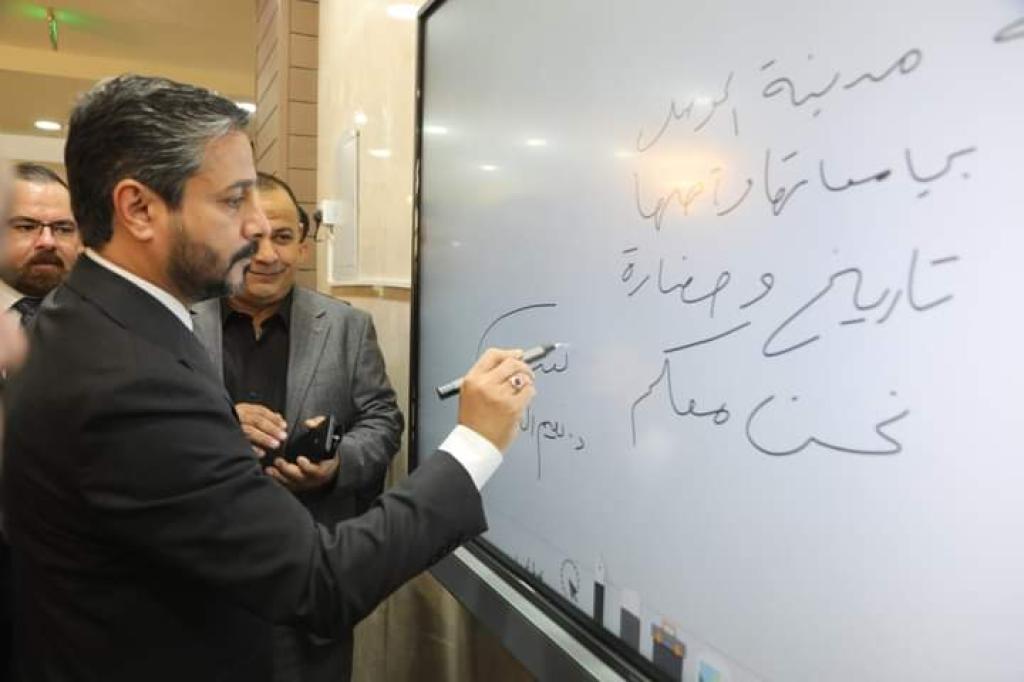 مدينة الموصل
بجامعاتها وأهلها
تاريخ وحضارة
نحن معكم
د. نعيم